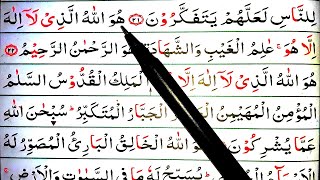 لِلنَّاسِ لَعَلَّهُمْ يَتَفَكَّرُوْنَ ﴿٢١﴾ هُوَ اللّٰهُ الَّذِىْ لَآ اِلٰهَ
اِلَّا هُوَ ۚ عٰلِمُ الْغَيْبِ وَالشَّهَادَةِ ۚ هُوَ الرَّحْمٰنُ الرَّحِيْمُ ﴿٢٢﴾
هُوَ اللّٰهُ الَّذِىْ لَآ اِلٰهَ اِلَّا الْمَلِكُ الْقُدُّوْسُ السَّلٰمُ
الْمُؤْمِنُ الْمُهَيْمِنُ الْعَزِيْزُ الْجَبَّارُ الْمُتَكَبِّرُ ؕ سُبْحٰنَ اللّٰهِ
عَمَّا يُشْرِكُوْنَ هُوَ اللّٰهُ الْخَالِقُ الْبَارِئُ الْمُصَوِّرُ لَهُ
الْاَسْمَآءُ يُسَبِّحُ لَهٗ مَا فِى السَّمٰوٰتِ وَالْاَرْضِ ۚ